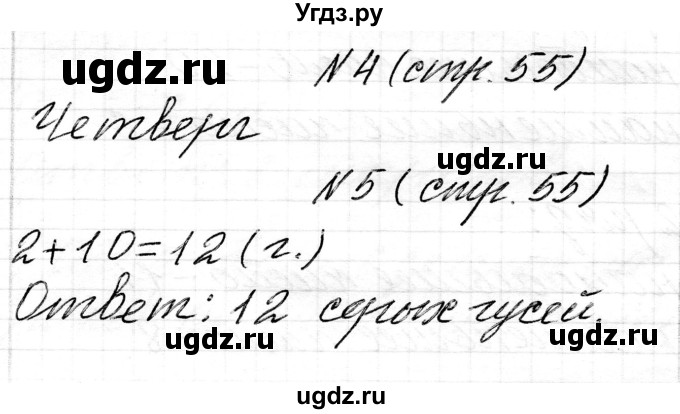 Угдз.ру
ugdz.ru
N4 (стр. 55)
Четверг
ugdz.ru
N5 (стр. 55)
2+10=12 (г.)
Ответ: 12 серых гусей.
ugdz.ru
ugdz.ru
ugdz.ru